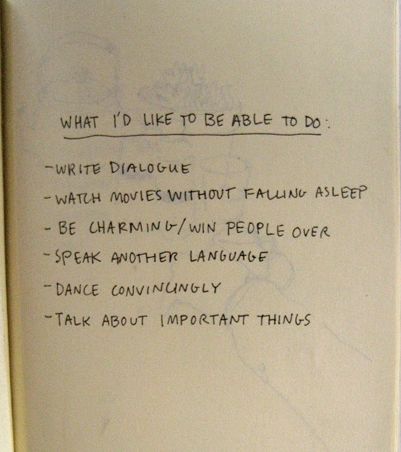 WHAT I'D LIKE TO BE ABLE TO DO:
-WRITE DIALOGUE
-WATCH MOVIES WITHOUT FALLING ASLEEP
- BE CHARMING/WIN PEOPLE OVER
-SPEAK ANOTHER LANGUAGE
-DANCE CONVINCINGLY
-TALK ABOUT IMPORTANT THINGS